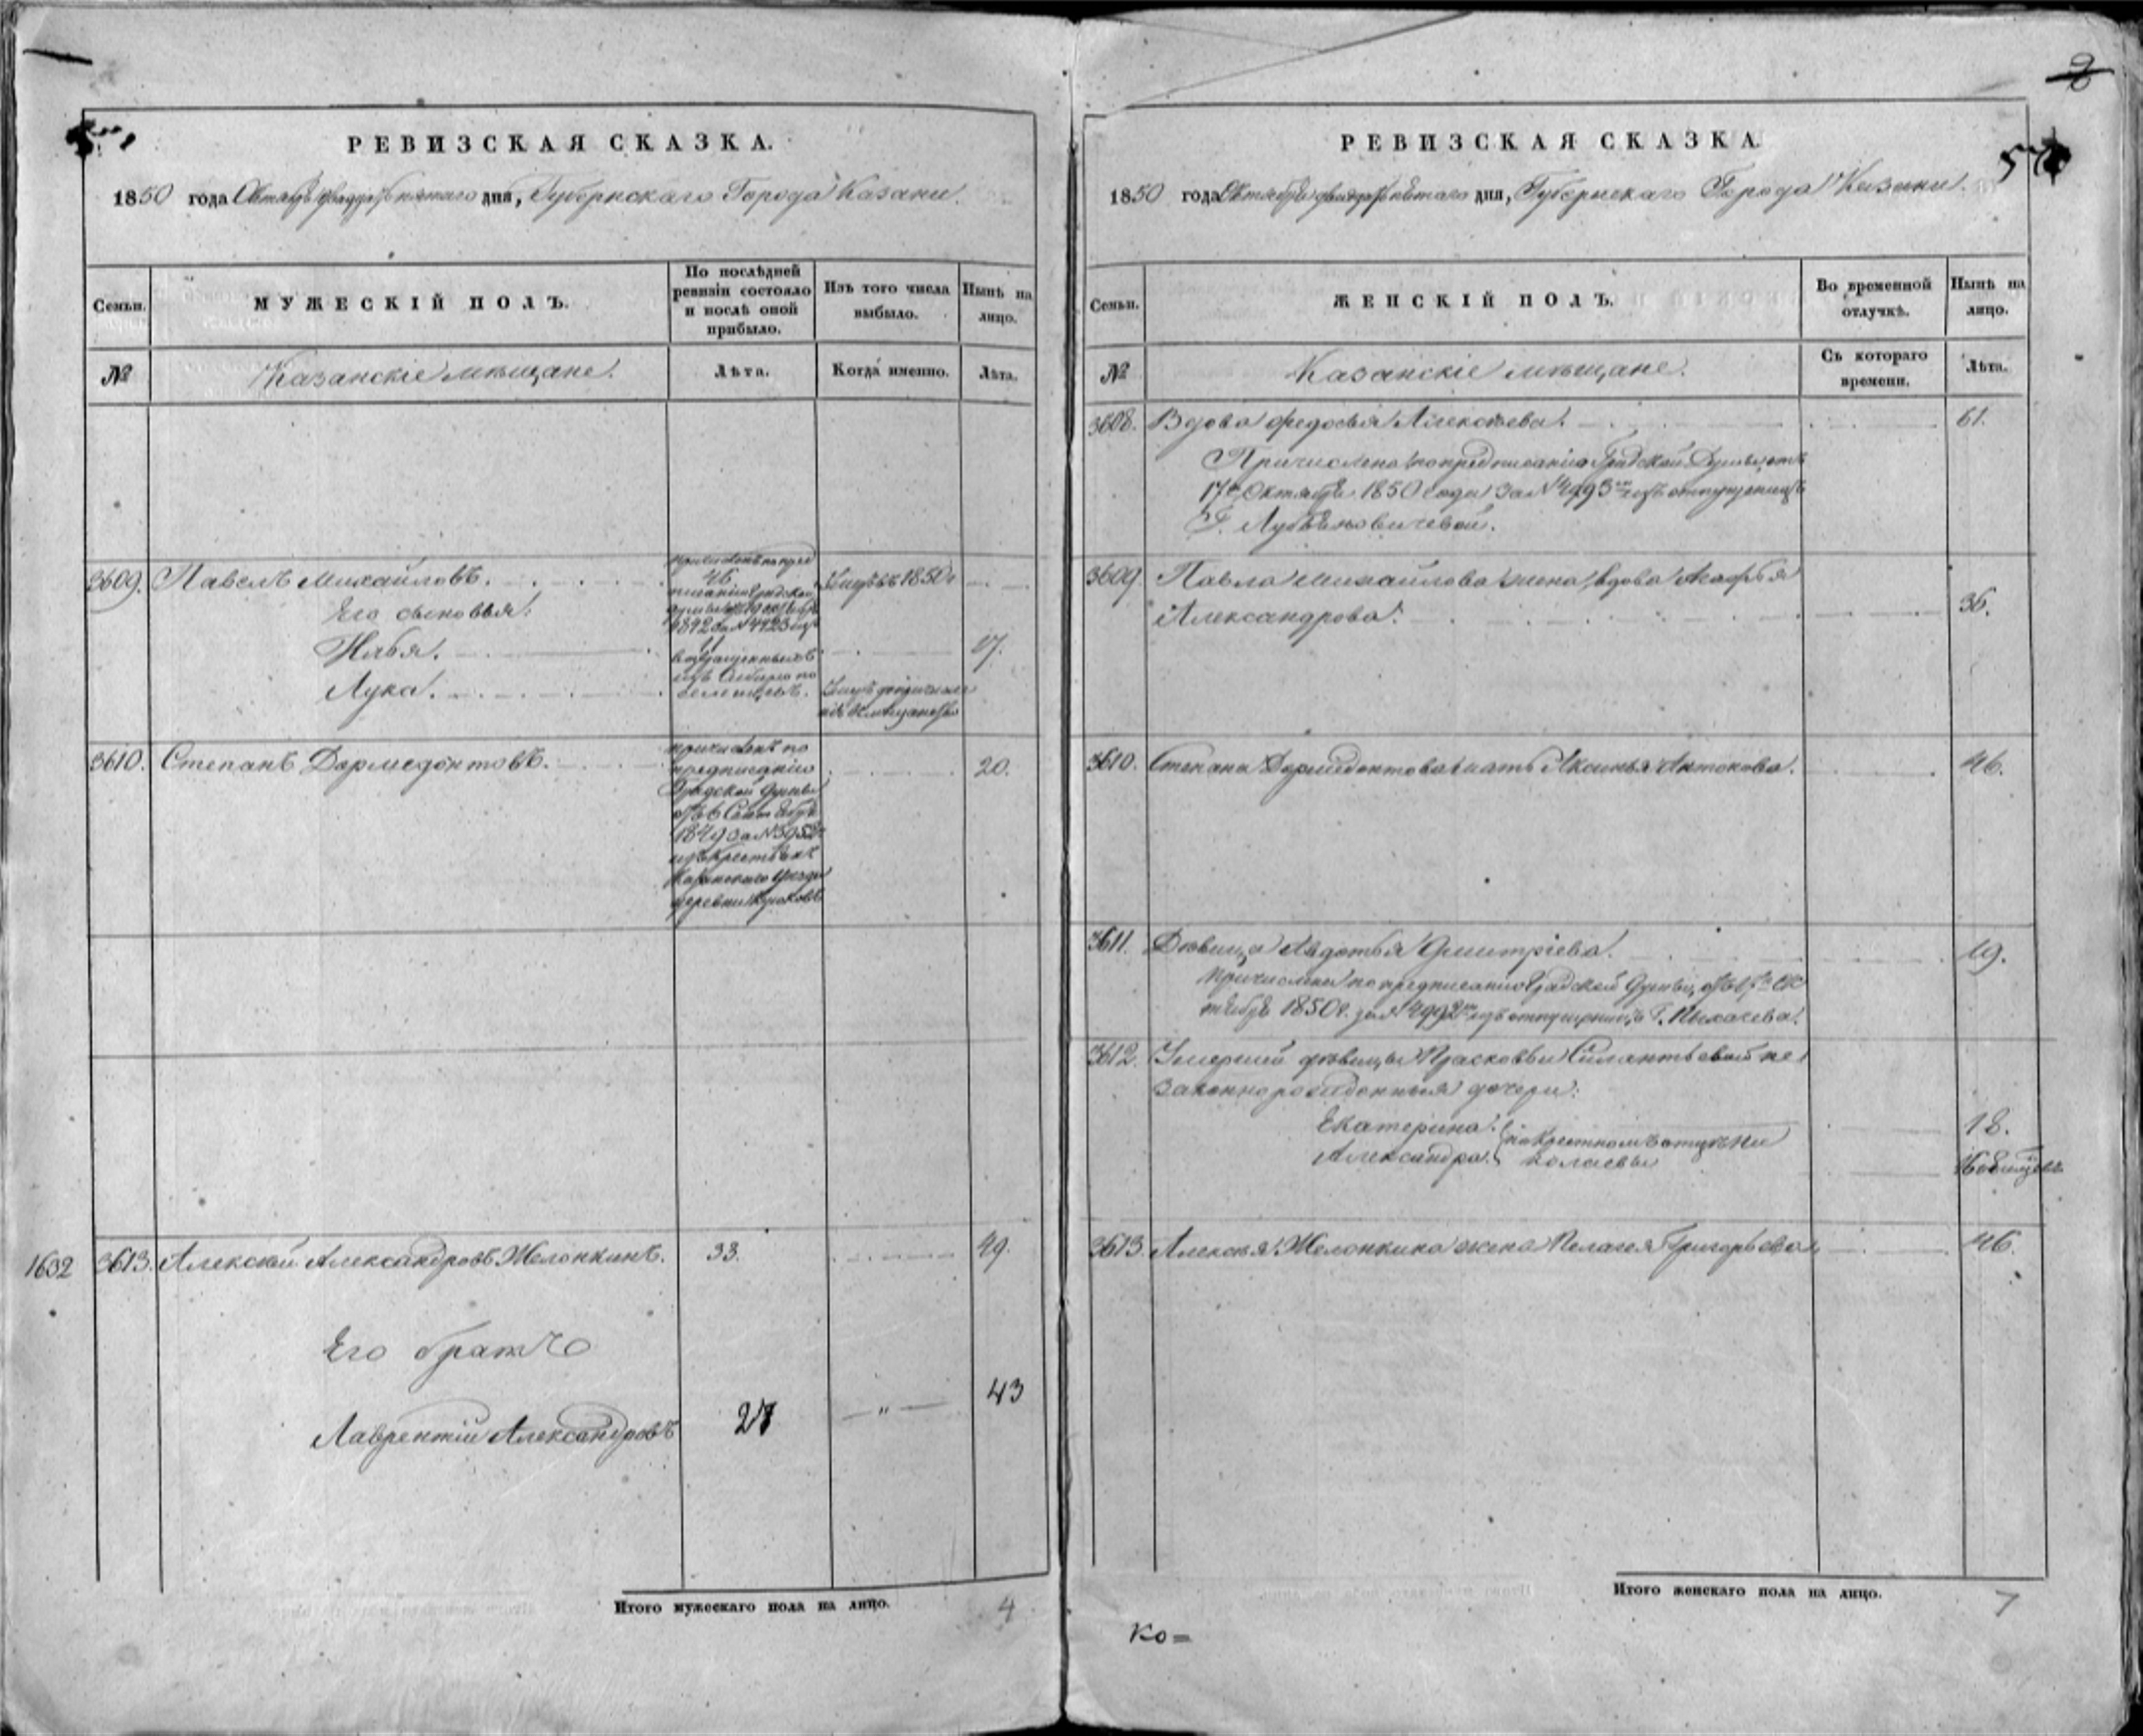 РЕВИЗСКАЯ СКАЗКА.
1850 года Октября двадцать пятаго дня, Губернскаго Города Казани.
Семьи.
МУЖЕСКІЙ ПОЛЪ.
По послѣдней ревизіи состояло и послѣ оной прибыло.
Изъ того числа выбыло.
Нынѣ на лицо.
№
Казанскіе мѣщане.
Лѣта.
Когда именно.
Лѣта.
3609. Павелъ Михайловъ. 46 Умеръ въ 1850 г.
Его сыновья:
Илья. 17.
Лука.
3610. Степанъ Дормедонтовъ. 20.
причисленъ по
предписанію
Градской Думы
отъ 6 Сентября
1849 за №
изъ крестьянъ
Казанскаго уѣзда
деревни
1632 3613. Алексѣй Александровъ Желонкинъ. 33. 49.
Его братъ
Лаврентій Александровъ 27 — " — 43
Итого мужескаго пола на лицо. 4
РЕВИЗСКАЯ СКАЗКА.
1850 года Октября двадцать пятаго дня, Губернскаго Города Казани.
Семьи.
ЖЕНСКІЙ ПОЛЪ.
Во временной отлучкѣ.
Нынѣ на лицо.
№
Казанскіе мѣщане.
Съ котораго времени.
Лѣта.
3608. Вдова Федосья Алексѣева. 61.
Причислена по предписанію Градской Думы, отъ
17го Октября 1850 года за № 4993м изъ отпущенницъ
Г.
3609. Павла Михайлова жена, вдова Агафья
Александрова. 36.
3610. Степана Дормедонтова мать Аксинья Антонова. 46.
3611. Дѣвица Авдотья Дмитріева. 19.
причислена по предписанію Градской Думы, отъ 17го Ок
тября 1850 г. за № 4992м изъ отпущенницъ Г.
3612. Умершей дѣвицы Прасковьи Силантьевой не
законнорожденныя дочери:
Екатерина. } по крестномъ отцѣ Ни 18.
Александра. } колаевы
3613. Алексѣя Желонкина жена Пелагея Григорьева 46.
Итого женскаго пола на лицо. 7
Ко=